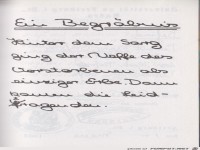 Ein Begräbnis
Hinter dem Sarg
ging der Neffe des
Verstorbenen als
einziger Erbe. Dann
kamen die Leid-
tragenden.